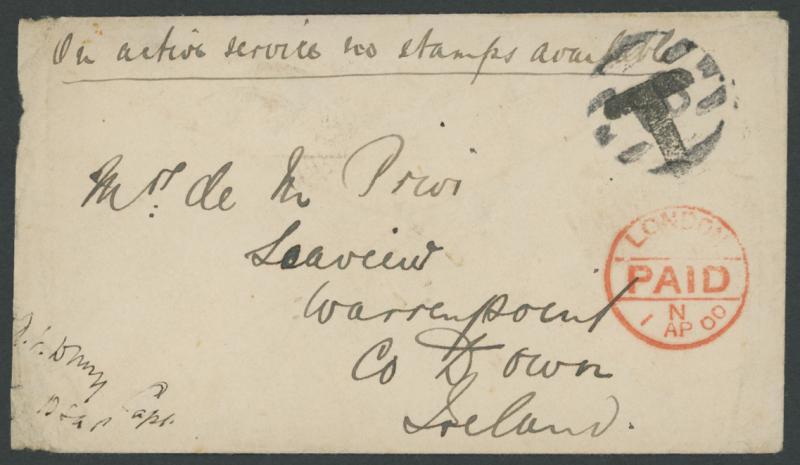 On active service no stamps available
T
Mrs. de M
Seaview
Warrenpoint
Co Down
Ireland.
LONDON
PAID
N
1 AP 00
Capt.